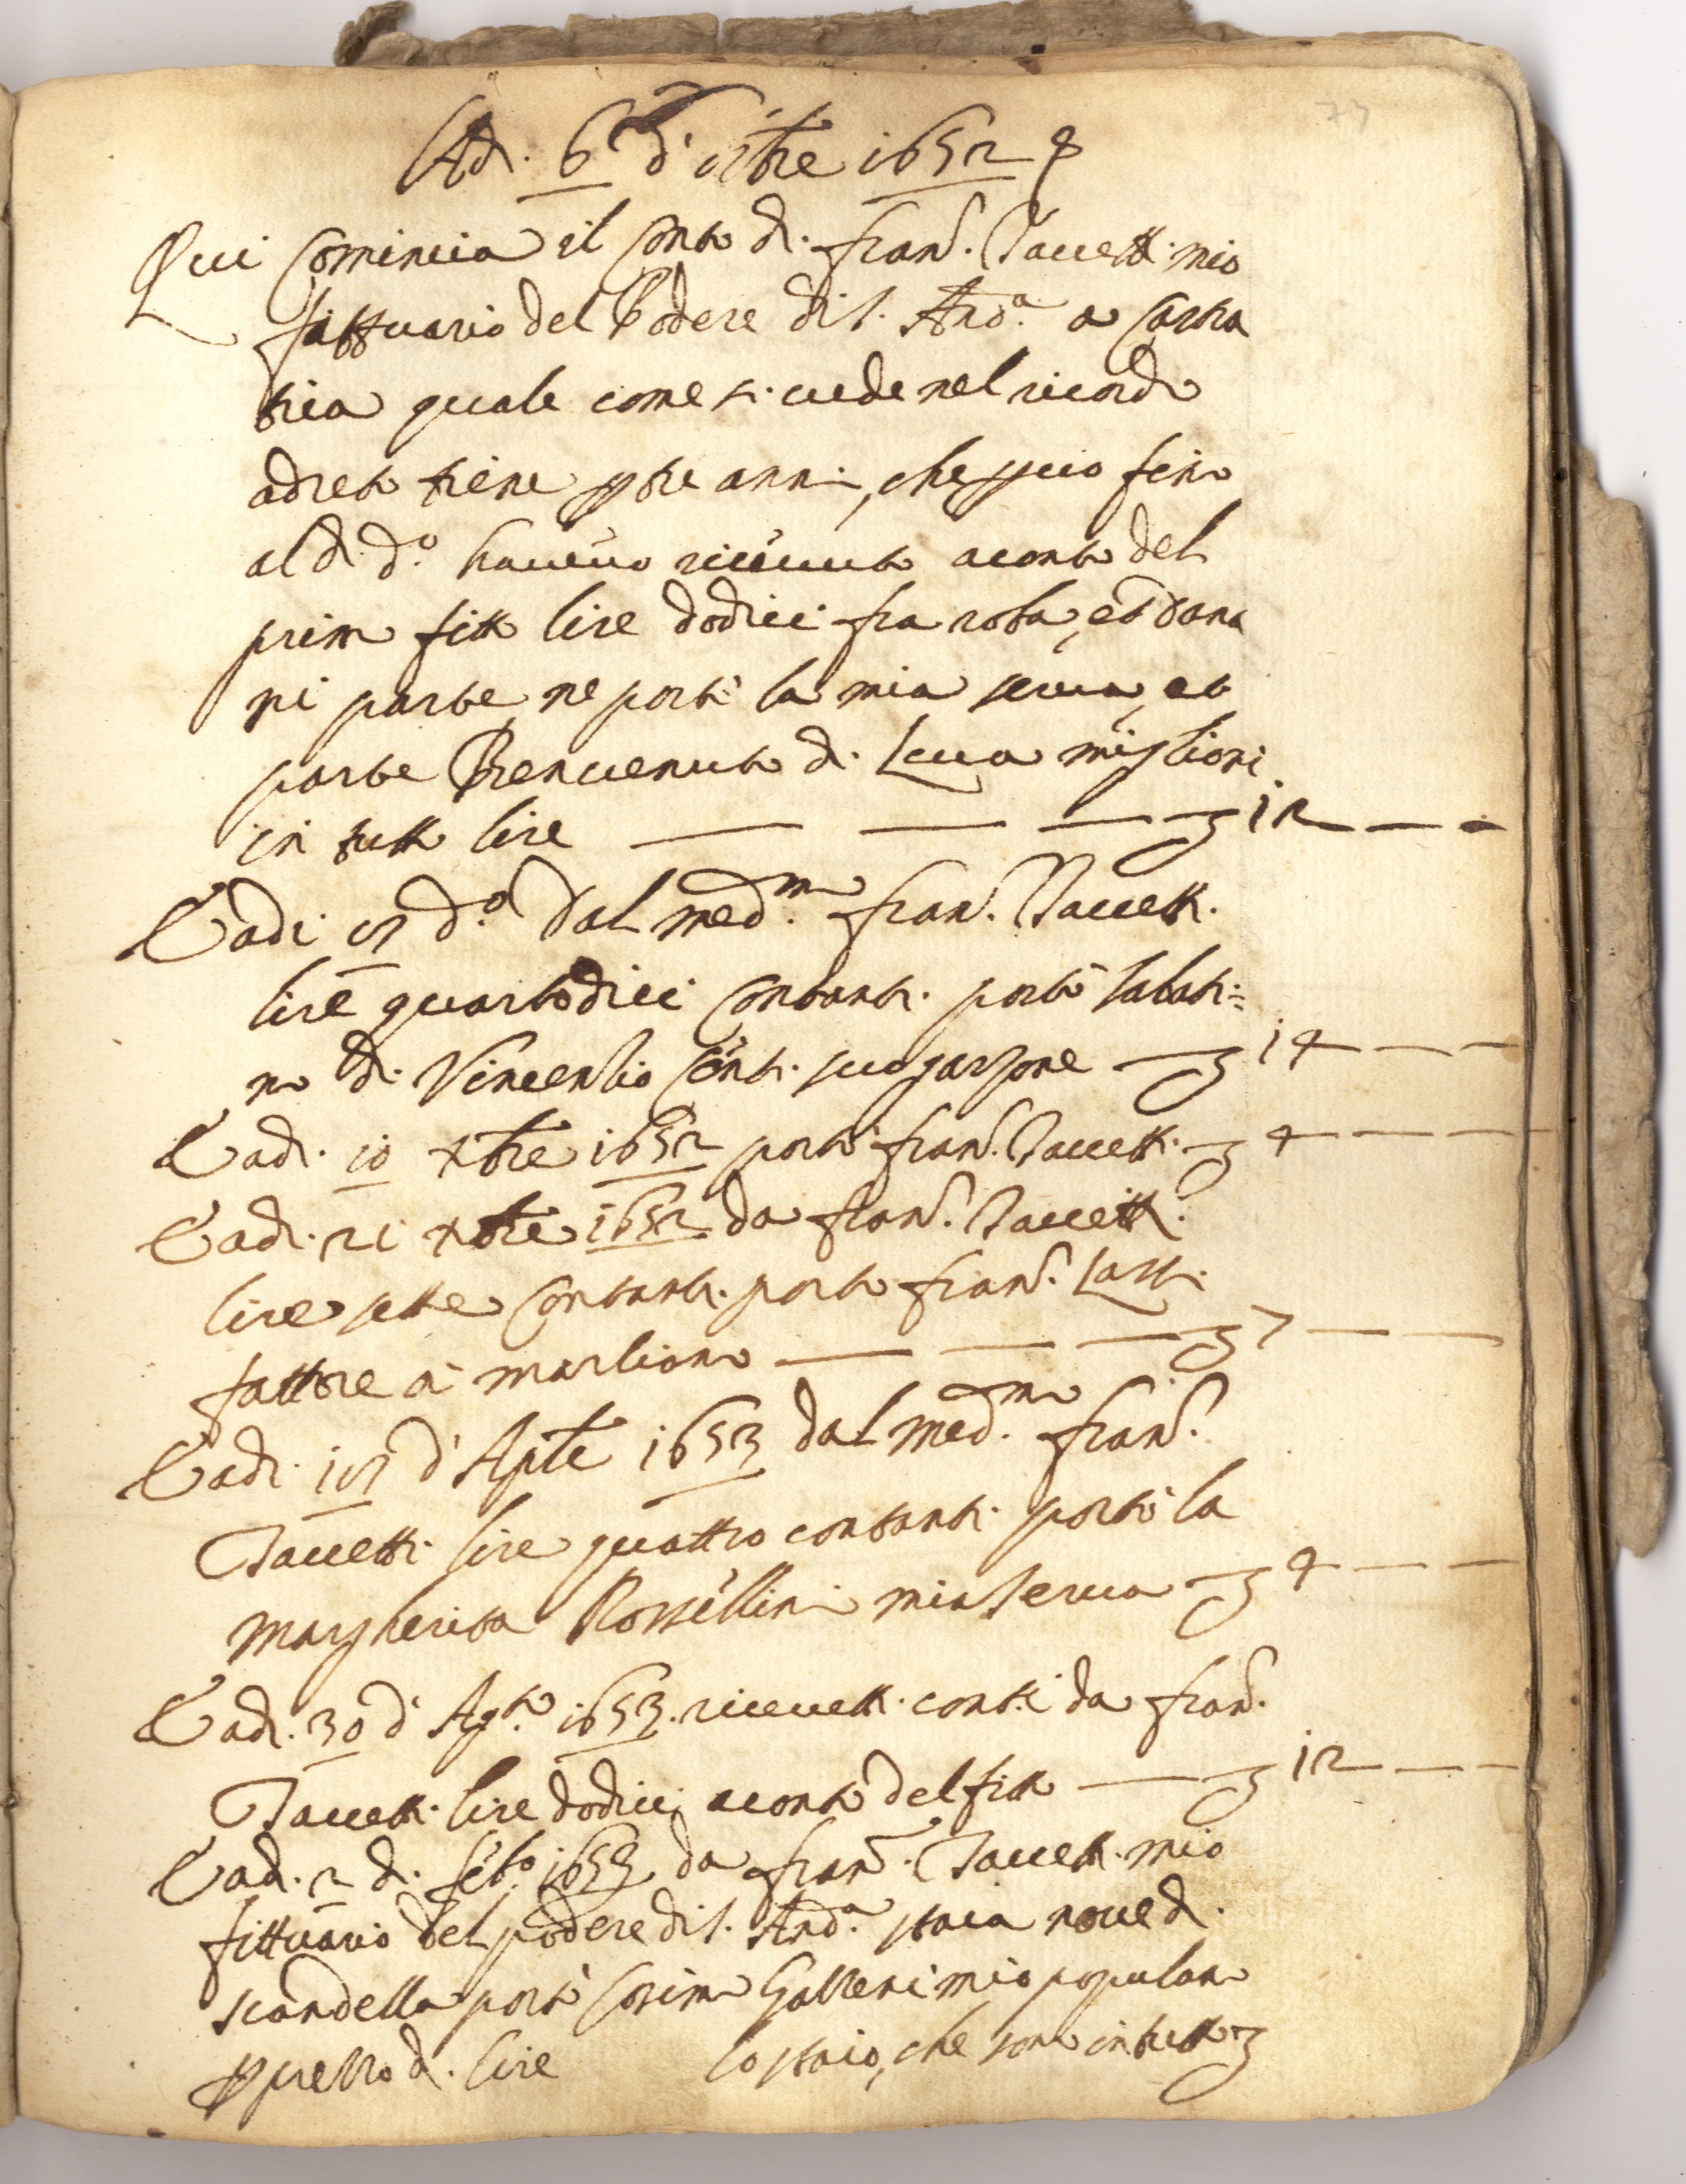 Adi. 6 d' 8bre 1652
Qui Comincia il Conto di. Fran.º Taccetti mio
fittuario del Podere di S. And.ª a Castra
tria quale come si. vede nel ricordo
adreto tiene p tre anni, che p ciò fino
al dì d.º havevo ricevuto a conto del
primo fitto lire dodici fra roba, et dana
ri parte ne portò la mia serva, et
parte Benvenuto di. Luca migliori
in tutto lire — — — 12 — —
E adi d.º dal med.mo Fran.º Taccetti.
lire quartodici Contanti. portò Sabati=
no di. Vincentio Conti. suo garzone — 14 — —
E adi. 10 xbre 1652 portò Fran.º Taccetti. — 4 — —
E adi. 21 xbre 1652 da Fran.º Taccetti.
lire sette Contanti. portò Fran.º
fattore à — — — 7 — —
E adi. d' Aple 1653 dal med.mo Fran.º
Taccetti. lire quattro contanti. portò la
Margherita Rossellini mia Serva — 4 — —
E adi. 30 d' Ag.to 1653. ricevetti. cont.i da Fran.º
Taccetti. lire dodici a conto del fitto — 12 — —
E adi. 2 di. 1653 da Fran.º Taccetti. mio
fittuario del podere di S. And.ª staia nove di.
scandella portò Cosimo Galleni mio popolano
p prezzo di. lire lo staio, che sono in tutto